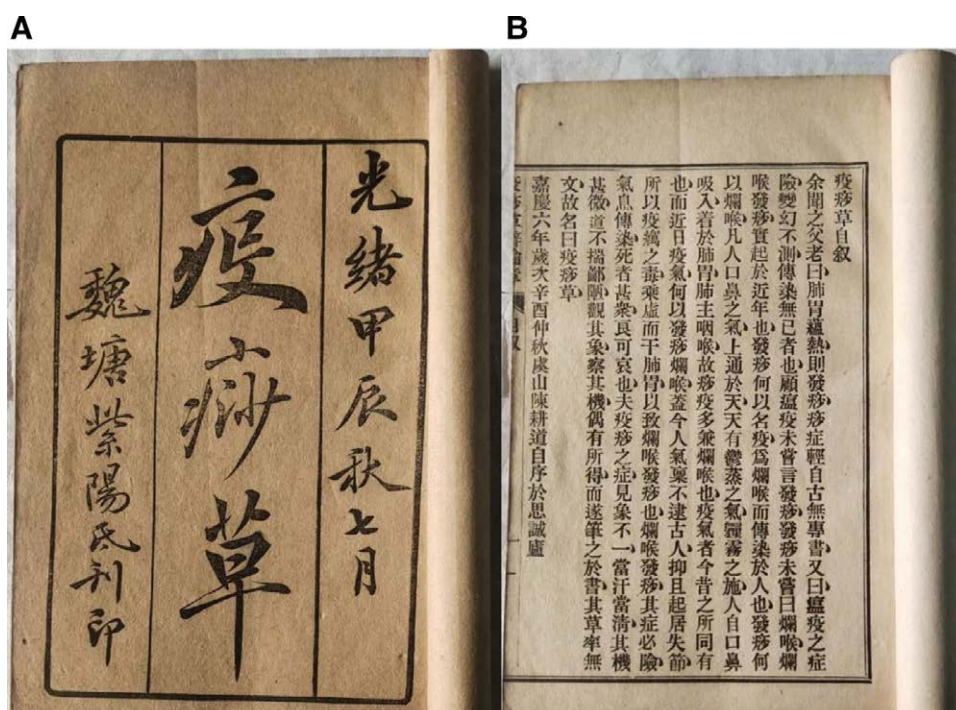 A
光緒甲辰秋七月
疫痧草
魏塘紫陽氏刊印
B
疫痧草自叙
余聞之父老曰肺胃蘊熱則發痧痧症輕自古無專書又曰瘟疫之症
險變幻不測傳染無已者也顧瘟疫未嘗言發痧發痧未嘗曰爛喉爛
喉發痧實起於近年也發痧何以名疫爲爛喉而傳染於人也發痧何
以爛喉凡人口鼻之氣上通於天天有鬱蒸之氣霾霧之施人自口鼻
吸入着於肺胃肺主咽喉故痧疫多兼爛喉也疫氣者今昔之所同有
也而近日疫氣何以發痧爛喉蓋今人氣禀不逮古人抑且起居失節
所以疫癘之毒乘虛而干肺胃以致爛喉發痧也爛喉發痧其症必險
氣息傳染死者甚衆良可哀也夫疫痧之症見象不一當汗當清其機
甚微道不揣鄙陋觀其象察其機偶有所得而遂筆之於書其草率無
文故名曰疫痧草
嘉慶六年歲次辛酉仲秋虞山陳耕道自序於思誠廬